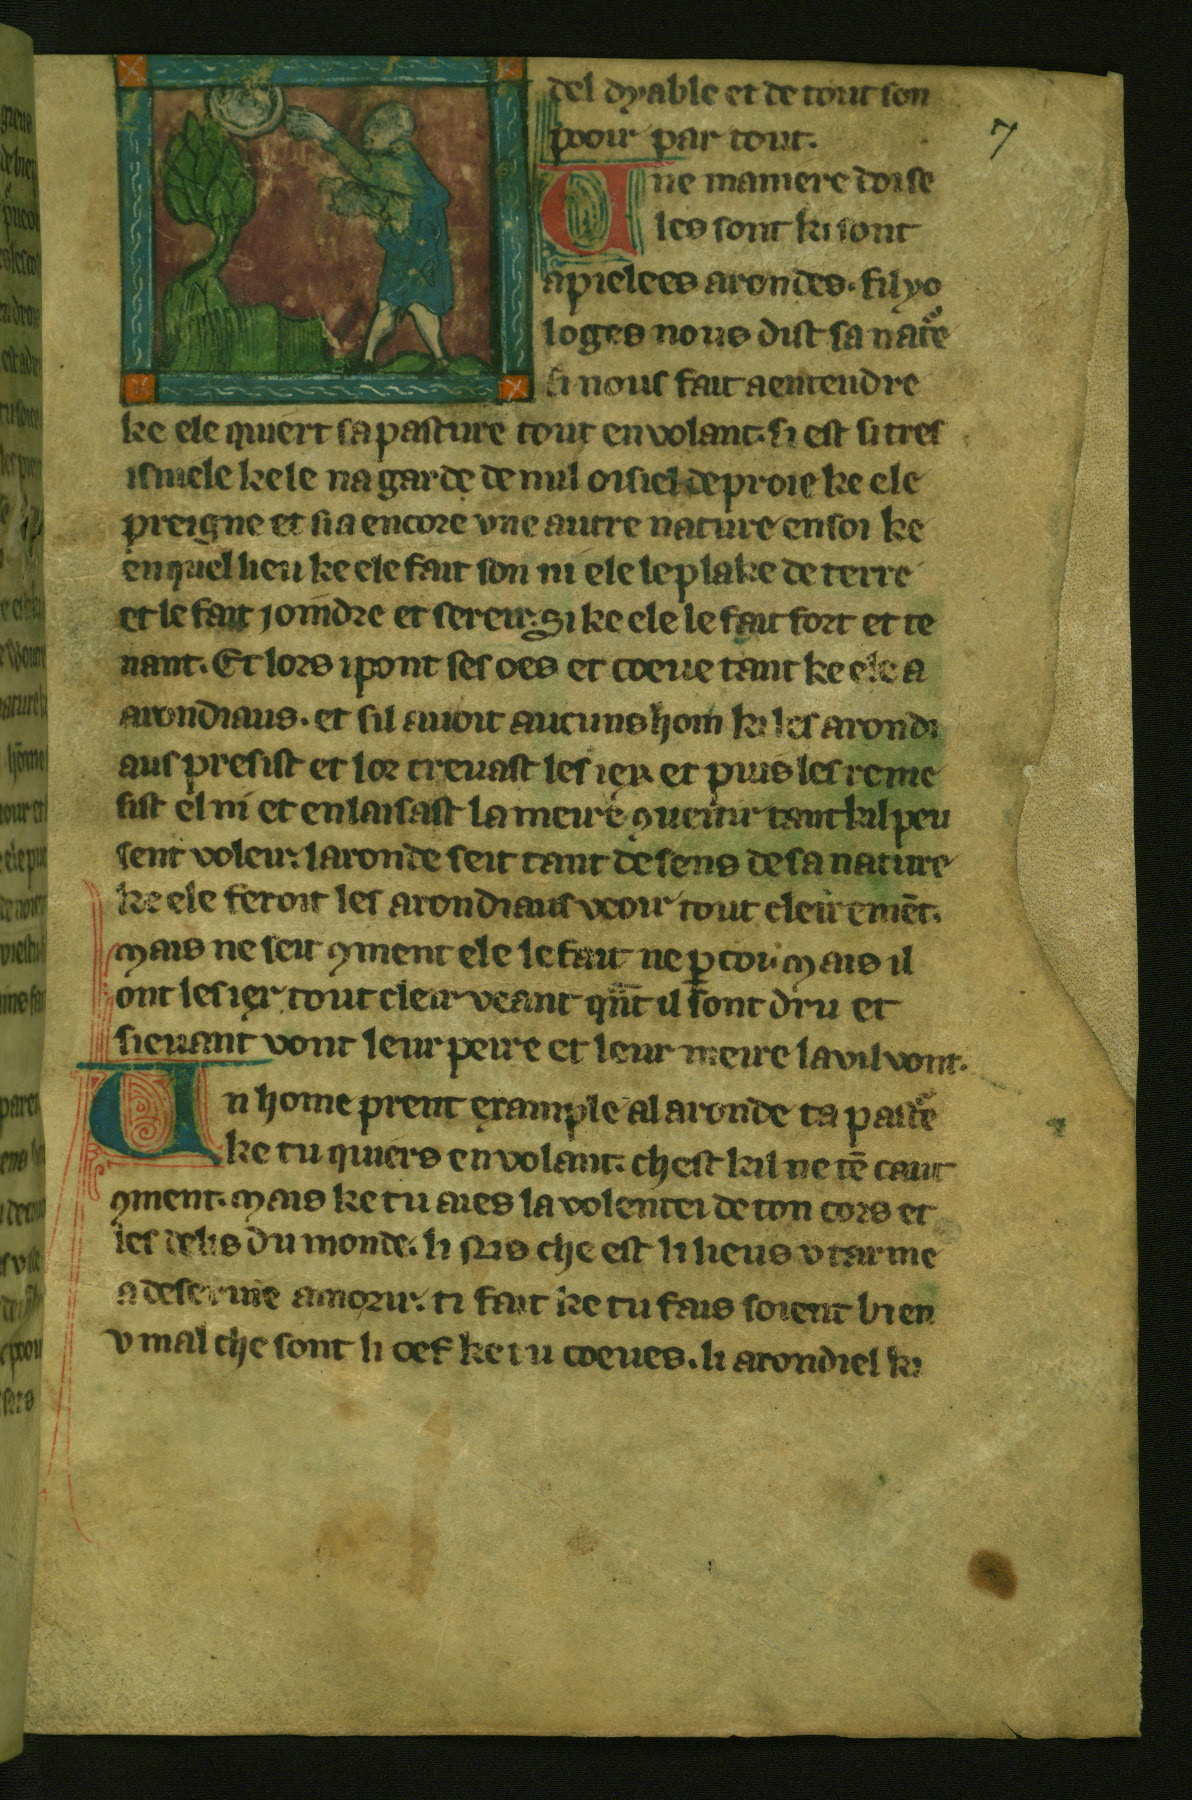 del dyable et de tout son
pooir par tout.
7
Une maniere doise
les sont ki sont
apielees arondes. filyo
loges nous dist sa nature
si nous fait a entendre
ke ele quiert sa pasture tout en volant. si est si tres
isniele kele na garde de nul oisiel de proie ke ele
preigne et si a encore vne autre nature en soi ke
en quel lieu ke ele fait son ni ele le plake de terre
et le fait joindre et sereir. Si ke ele le fait fort et te
nant. Et lors i pont ses oes et coeue tant ke ele a
arondiaus. et sil auoit aucuns hom ki les arondi
aus presist et lor creuast les iex et puis les reme
sist el ni et en laisast la meire ꝯueuir tant kil peu
sent voleir. laronde seit tant de sens de sa nature
ke ele feroit les arondiaus veoir tout cleiremēt.
Mais ne seit ꝯment ele le fait ne ꝑ coi Mais il
ont les iex tout cleir veant qn̄t il sont dru et
sieuant vont leur peire et leur meire la v il vont.
Un home prent example al aronde ta pasture
ke tu quiers en volant. chest kil ne tē caut
ꝯment. Mais ke tu aies la volentei de ton cors et
les delis du monde. li nis che est li lieus v tarme
a deseruie a morir. ti fait ke tu fais soient bien
v mal che sont li oef ke tu coeues. li arondiel ki